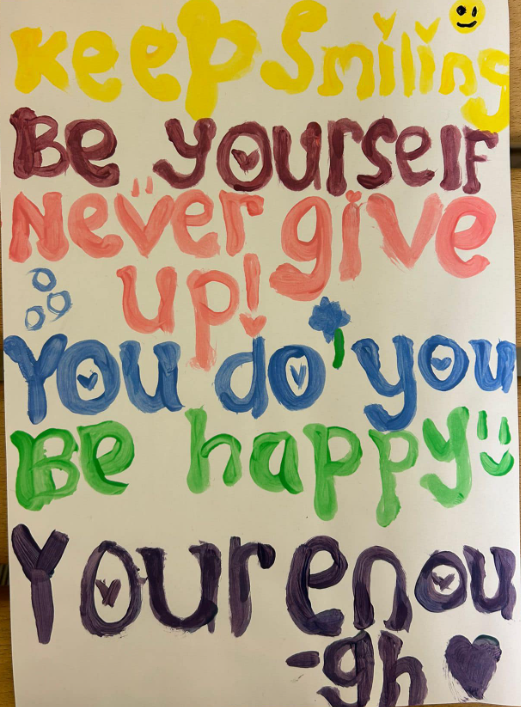 Keep Smiling
Be yourself
Never give
up!
You do you
Be happy
Your enou
-gh